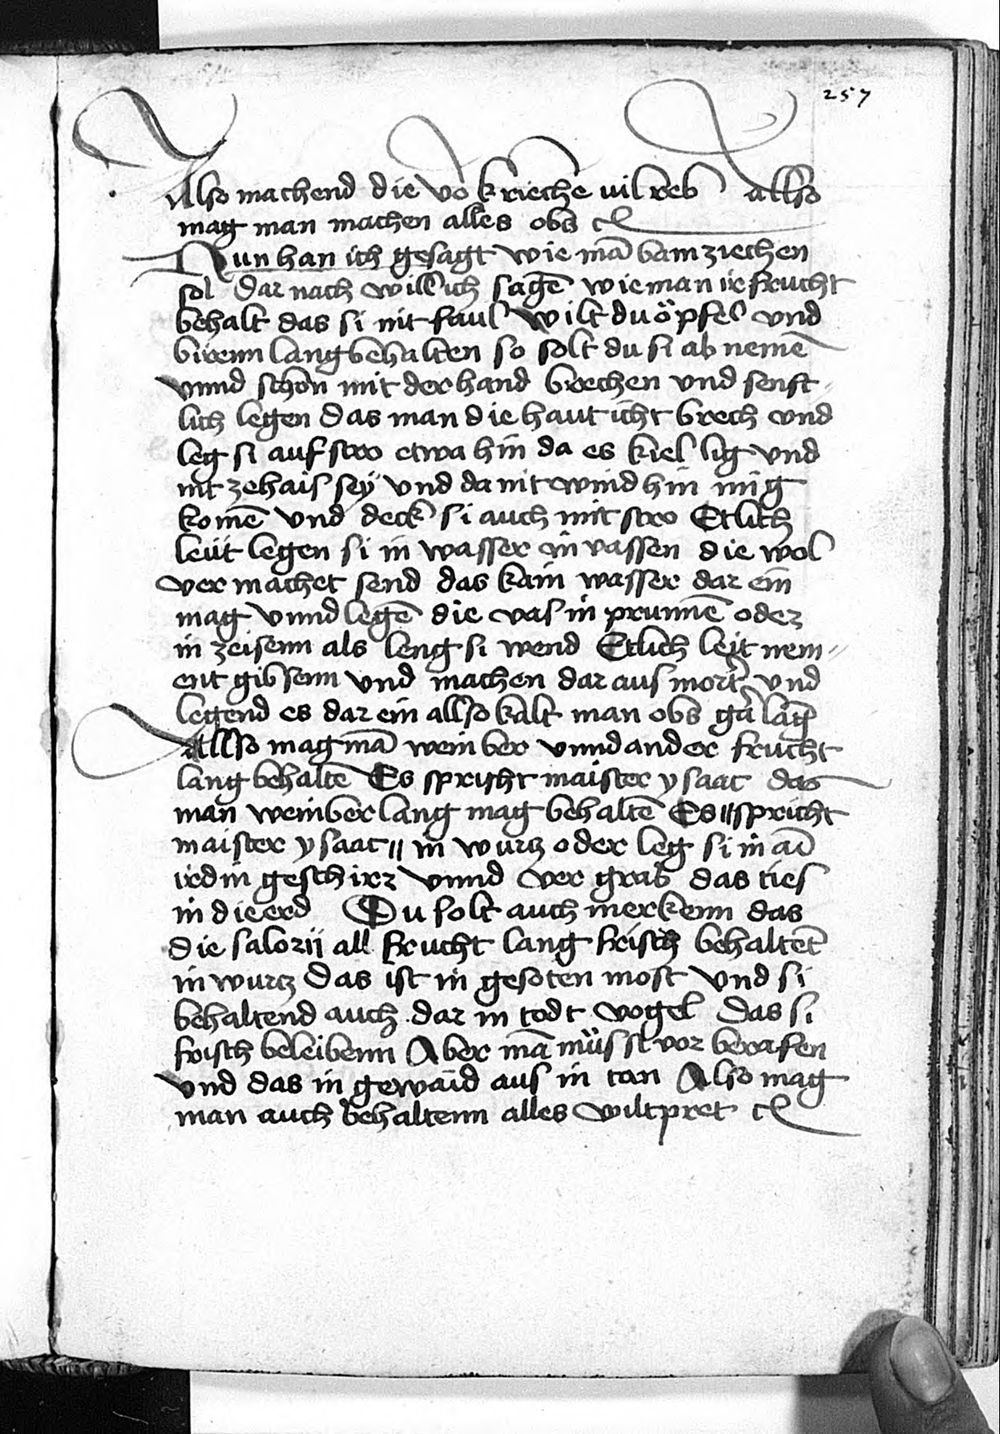 257
Also machend die vō kriechē vil reb allso
mag man machen alles obs ꝛc
Nun han ich gesagt wie mā bam ziechen
sol dar nach will ich sagē wie man ir frucht
behalt das si nit faul wilt du öpfel vnd
birenn lang behalten so solt du si ab nemē
vnnd schon mit der hand brechen vnd senft
lich legen das man die haut icht brech vnd
leg si auf stro etwa hin da es kiel lig vnd
nit ze hais sey vnd da nit wind hin mg
komē vnd deck si auch mit stro Etlich
leüt legen si in wasser in vassen die wol
ver machet send das kain wasser dar ein
mag vnnd legē die vas in prunnē oder
in zeisenn als leng si wend Etlich leit nem=
ent gibsenn vnd machen dar aus morter vnd
legend es dar ein allso kalt man obs gā lāg
Allso mag mā wein ber vnnd ander frucht
lang behaltē Es spricht maister ysaac das
man weinber lang mag behaltē Es spricht
maister ysaac in wurtz oder leg si in ai
irdin geschirz vnnd ver grab das tief
in die erd Du solt auch merkenn das
die salorij all frucht lang frisch behaltēt
in wurtz das ist in gesoten most vnd si
behaltend auch dar in todt vogel das si
frisch beleibenn Aber mā mus si vor berafen
vnd das in gewaid aus in tan Also mag
man auch behaltenn alles wiltpret ꝛc